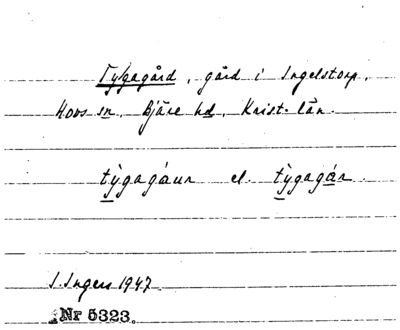 Tygagård, gård i Ingelstorp,
Hovs sn, Bjäre hd, Krist. län.
tỳgagáun el. tỳgagán.
I. Ingers 1947.
Nr 5323.